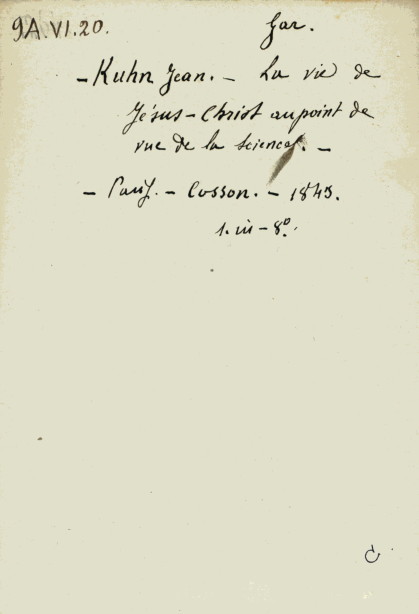 9A.VI.20.
Gar.
- Kuhn Jean. - La vie de
Jésus-Christ au point de
vue de la science. -
- Paris. - Cosson. - 1843.
1. in - 8º.